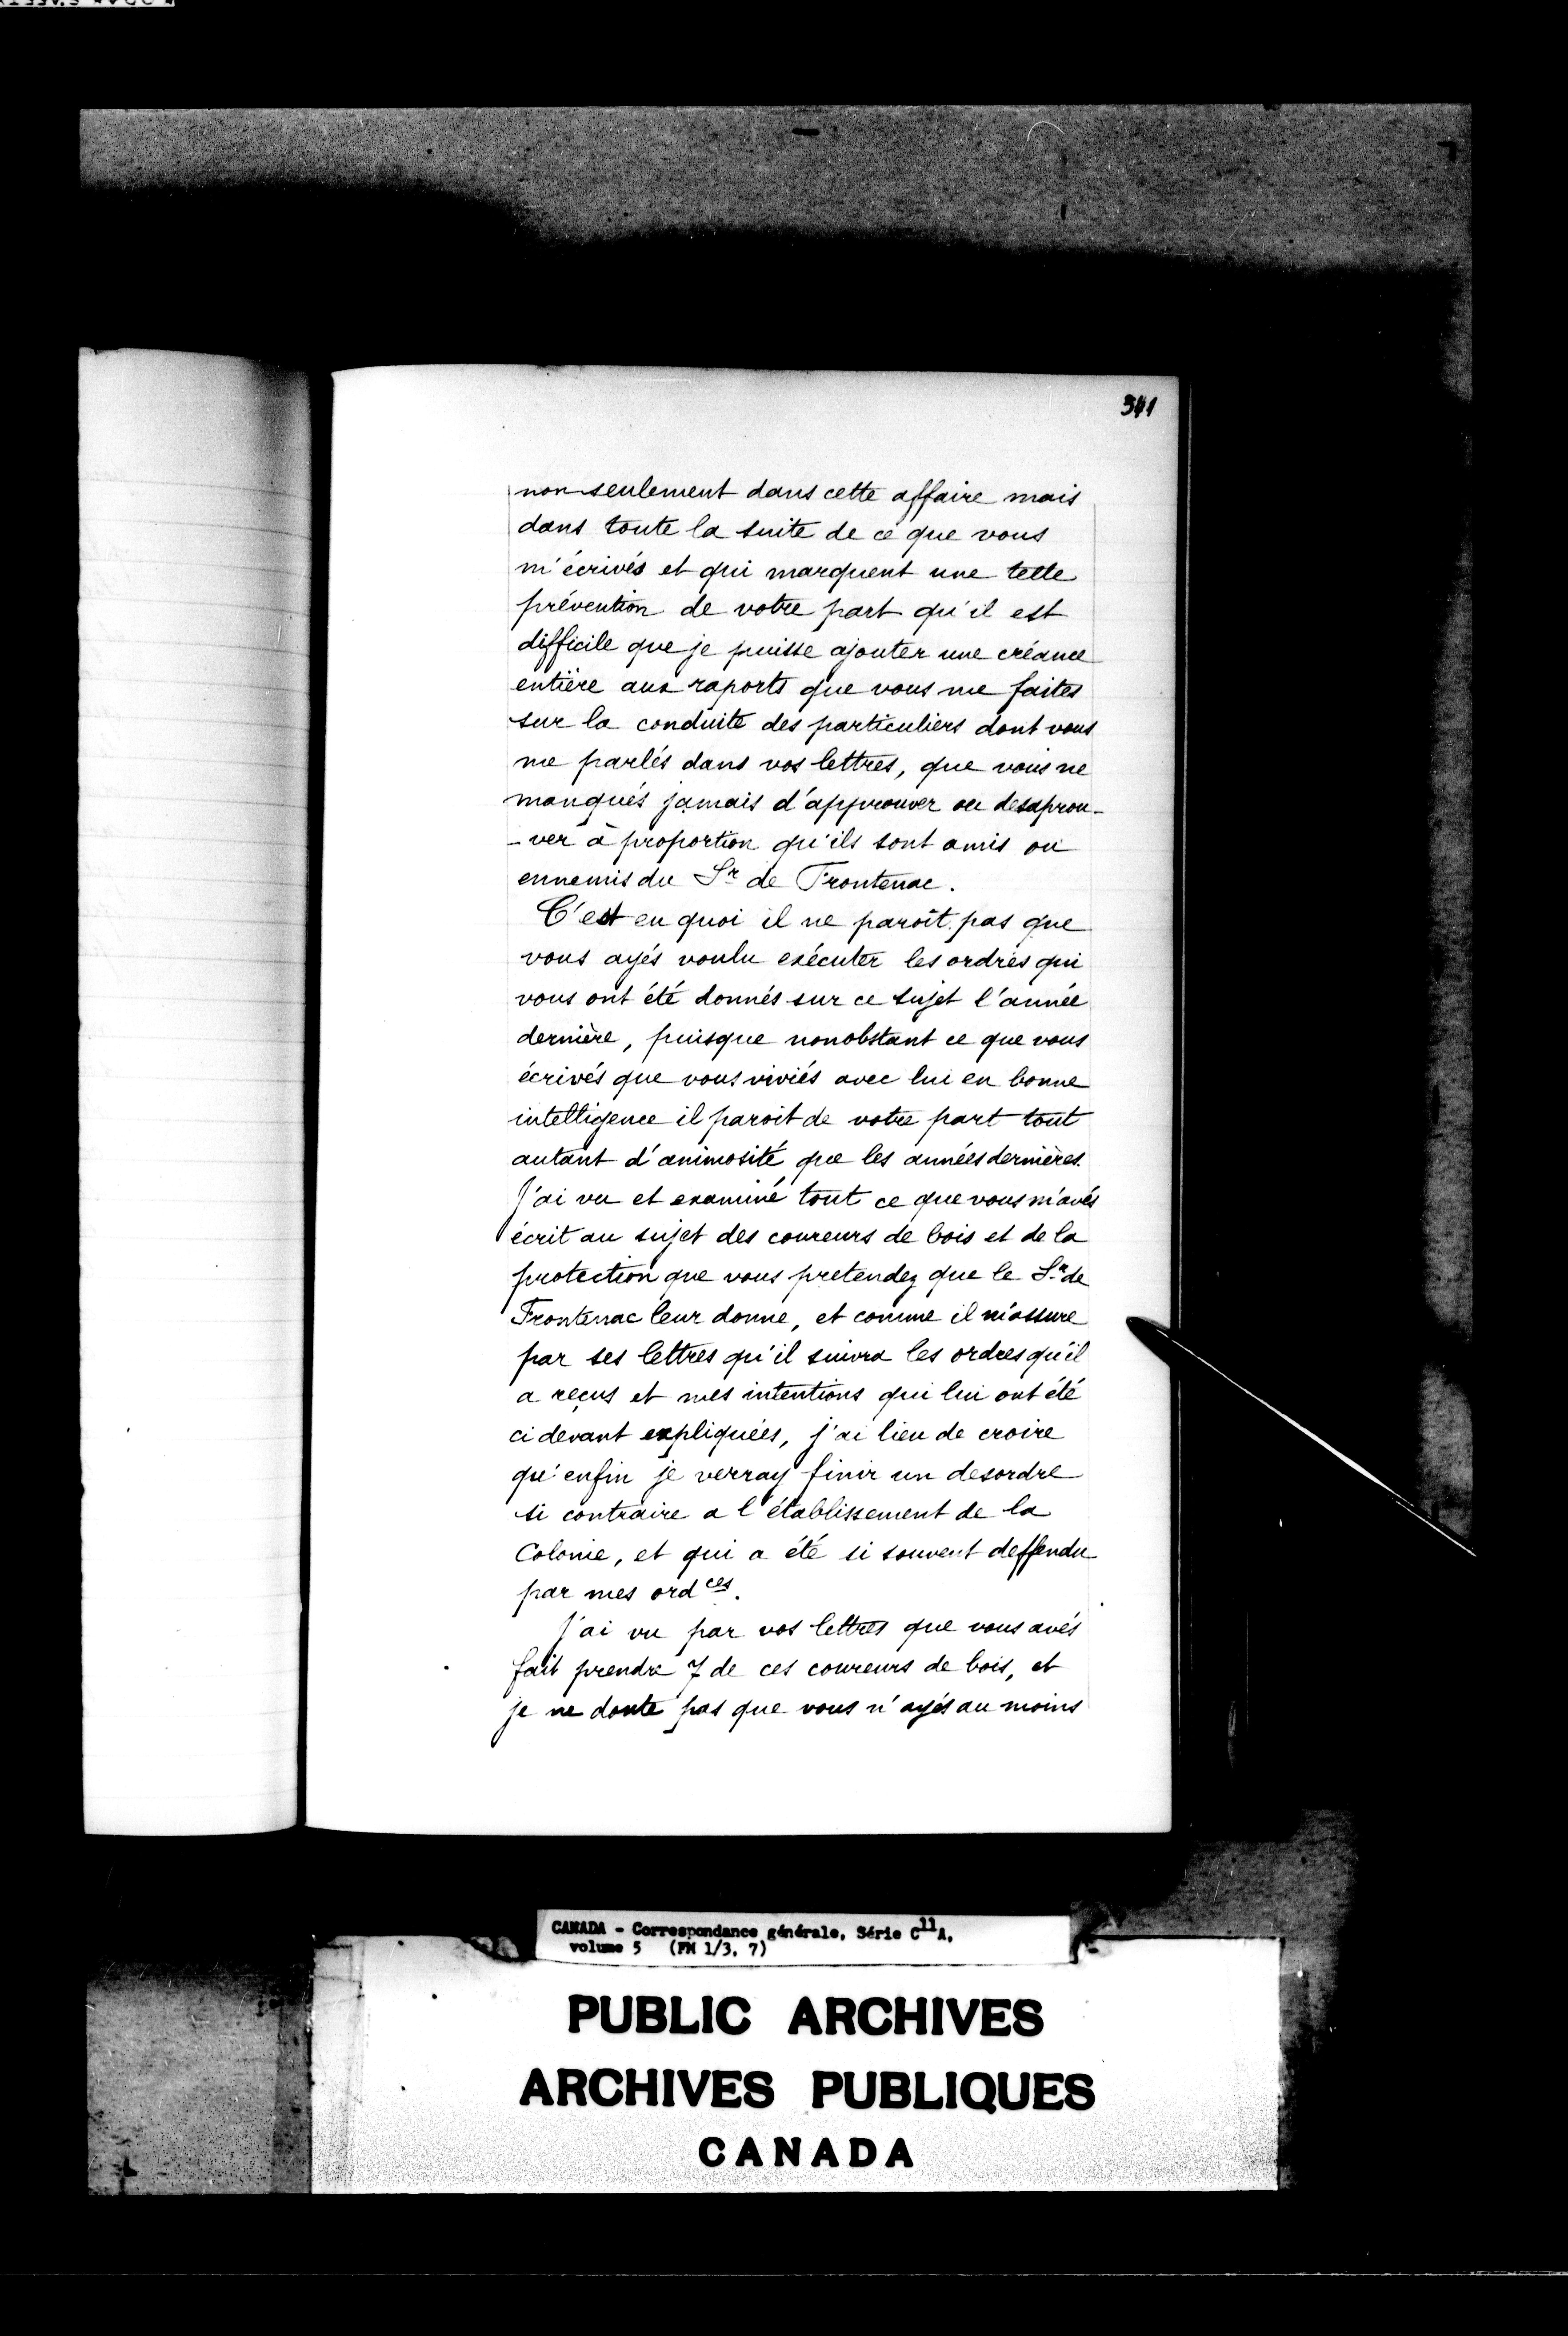 341
non seulement dans cette affaire mais
dans toute la suite de ce que vous
m'écrivés et qui marquent une telle
prévention de votre part qu'il est
difficile que je puisse ajouter une créance
entière aux raports que vous me faites
sur la conduite des particuliers dont vous
me parlés dans vos lettres, que vous ne
manqués jamais d'approuver ou desaprou-
-ver à proportion qu'ils sont amis ou
ennemis du Sr de Frontenac.
C'est en quoi il ne paroît pas que
vous ayés voulu exécuter les ordres qui
vous ont été donnés sur ce sujet l'année
dernière, puisque nonobstant ce que vous
écrivés que vous viviés avec lui en bonne
intelligence il paroit de votre part tout
autant d'animosité que les années dernières.
J'ai vu et examiné tout ce que vous m'avés
écrit au sujet des coureurs de bois et de la
protection que vous pretendez que le Sr de
Frontenac leur donne, et comme il m'assure
par ses lettres qu'il suivra les ordres qu'il
a reçus et mes intentions qui lui ont été
ci devant expliquées, j'ai lieu de croire
qu'enfin je verray finir un desordre
si contraire a l'établissement de la
Colonie, et qui a été si souvent deffendu
par mes ordces.
J'ai vu par vos lettres que vous avés
fait prendre 7 de ces coureurs de bois, et
je ne doute pas que vous n'ayés au moins
CANADA - Correspondance générale, Série C11A,
volume 5 (FM 1/3, 7)
PUBLIC ARCHIVES
ARCHIVES PUBLIQUES
CANADA